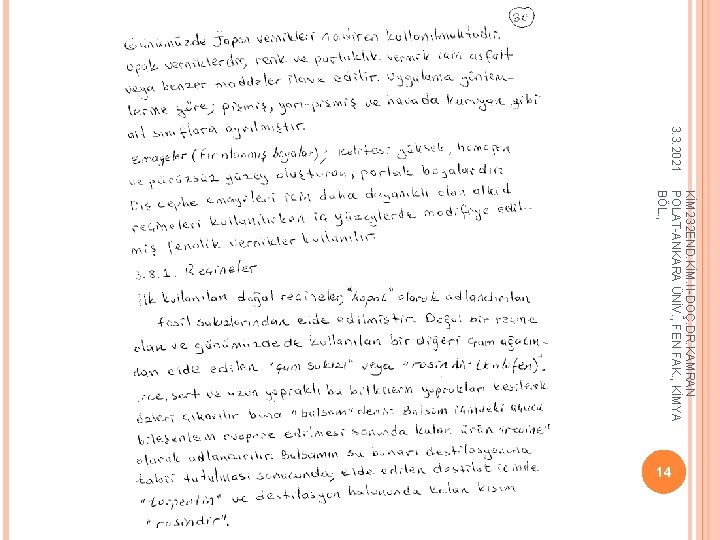 38
Günümüzde Japon vernikleri nadiren kullanılmaktadır.
opak verniklerdir, renk ve parlaklık vermek için asfalt
veya benzer maddeler ilave edilir. Uygulama yöntem-
lerine göre; pişmiş, yarı-pişmiş ve havada kuruyan gibi
alt sınıflara ayrılmıştır.
Emayeler (Fırınlanmış boyalar); kalitesi yüksek, homojen
ve pürüzsüz yüzey oluşturan, parlak boyalardır.
Dış cephe emayeleri için daha dayanıklı olan alkid
reçineleri kullanılırken iç yüzeylerde modifiye edil-
miş fenolik vernikler kullanılır.
3.8.1. Reçineler
İlk kullanılan doğal reçineler, "kopal" olarak adlandırılan
fosil sakızlarından elde edilmiştir. Doğal bir reçine
olan ve günümüzde de kullanılan bir diğeri çam ağacın-
dan elde edilen "çam sakızı" veya "rosindir (kolofen)".
İnce, sert ve uzun yapraklı bu bitkilerin yaprakları kesilerek
özleri çıkarılır buna "balsam" denir. Balsam içindeki uçucu
bileşenlerin evapore edilmesi sonunda kalan ürün "reçine"
olarak adlandırılır. Balsamın su buharı destilasyonuna
tabii tutulması sonucunda, elde edilen destilat içinde
"terpentin" ve destilasyon balonunda kalan kısım
"rosindir".
3.3.2021
KİM232END.KİM.II-DOÇ.DR.KAMRAN
POLAT-ANKARA ÜNİV., FEN FAK., KİMYA
BÖL.,
14